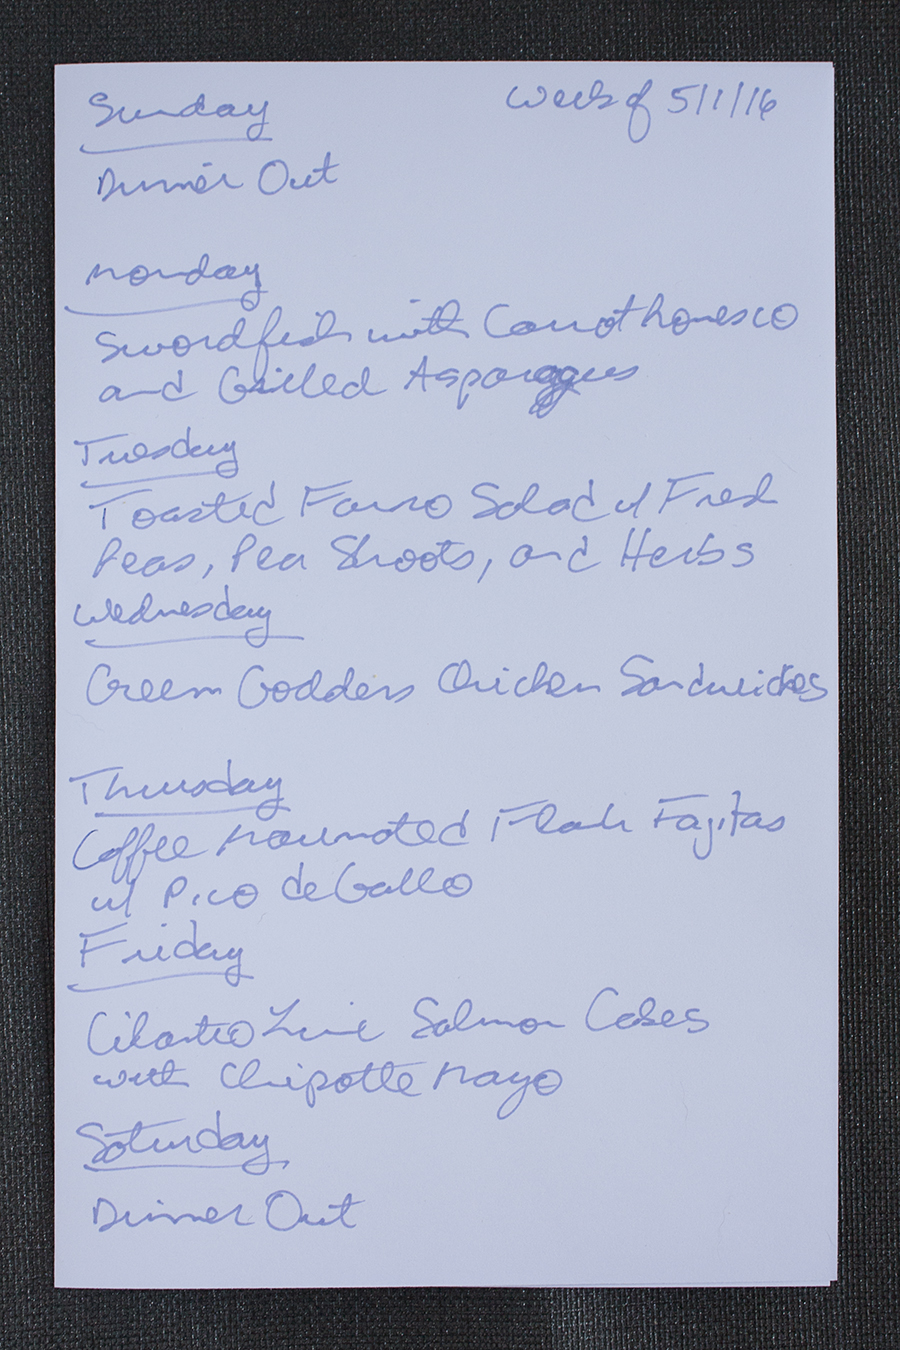 Sunday
Week of 5/1/16
Dinner Out
Monday
Swordfish with Carrot Romesco
and Grilled Asparagus
Tuesday
Toasted Farro Salad w/ Fresh
Peas, Pea Shoots, and Herbs
Wednesday
Green Goddess Chicken Sandwiches
Thursday
Coffee Marinated Flank Fajitas
w/ Pico de Gallo
Friday
Cilantro Lime Salmon Cakes
with Chipotle Mayo
Saturday
Dinner Out